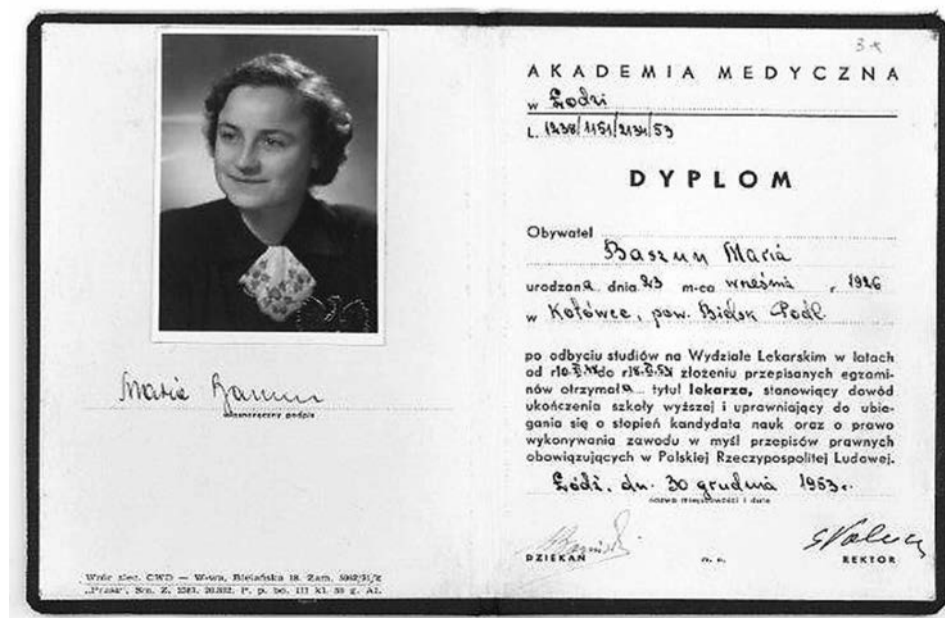 Maria Baszun
własnoręczny podpis
Wzór zlec. CWD — W-wa, Bielańska 18. Zam.
3
AKADEMIA MEDYCZNA
w Łodzi
L. 1238/1151/2134/53
DYPLOM
Obywatel
Baszun Maria
urodzona dnia 23 m-ca września, 1926
w Kołówce, pow. Bielsk Podl.
po odbyciu studiów na Wydziale Lekarskim w latach
od r. do r. złożeniu przepisanych egzami-
nów otrzymała tytuł lekarza, stanowiący dowód
ukończenia szkoły wyższej i uprawniający do ubie-
gania się o stopień kandydata nauk oraz o prawo
wykonywania zawodu w myśl przepisów prawnych
obowiązujących w Polskiej Rzeczypospolitej Ludowej.
Łódź, dn. 30 grudnia 1953 r.
nazwa miejscowości i data
DZIEKAN m. p. REKTOR